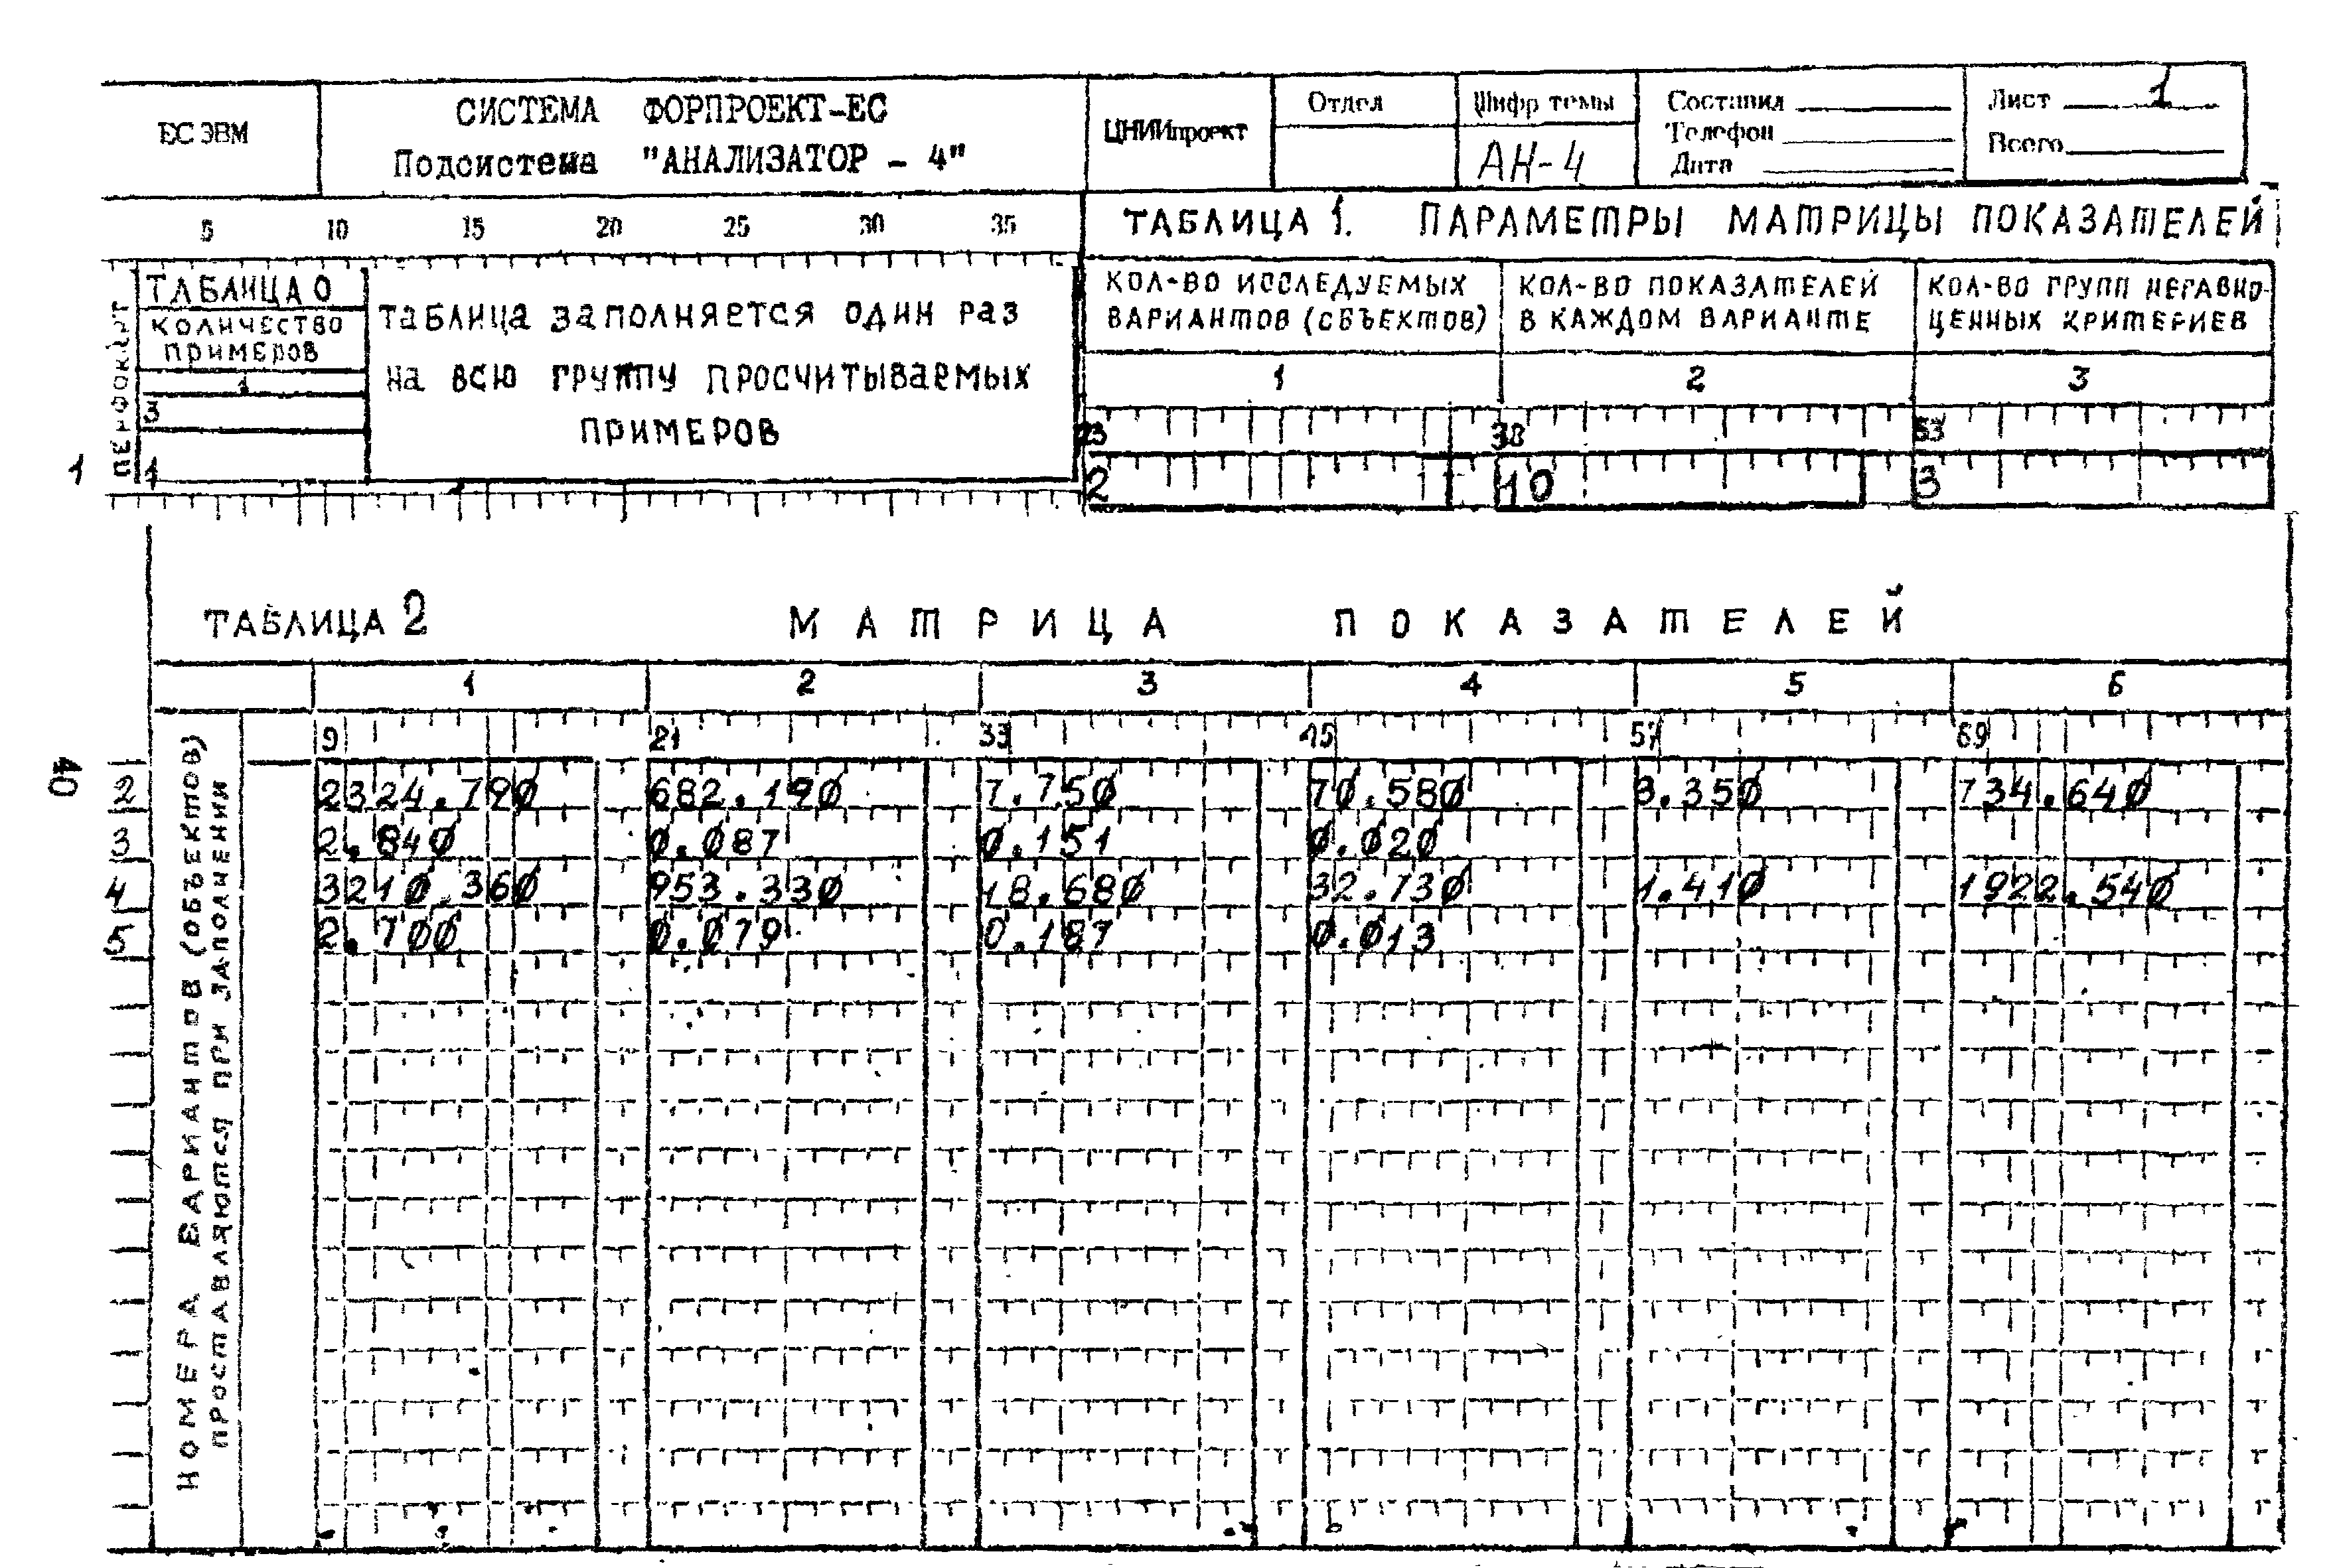 ЕС ЭВМ
СИСТЕМА ФОРПРОЕКТ-ЕС
Подсистема "АНАЛИЗАТОР - 4"
ЦНИИпроект
Отдел
Шифр темы
АН-4
Составил
Телефон
Дата
Лист 1
Всего
5 10 15 20 25 30 35
ТАБЛИЦА 1. ПАРАМЕТРЫ МАТРИЦЫ ПОКАЗАТЕЛЕЙ
ПЕРФОКАРТ
ТАБЛИЦА 0
КОЛИЧЕСТВО
ПРИМЕРОВ
1
3
1
1
таблица заполняется один раз
на всю группу просчитываемых
примеров
КОЛ-ВО ИССЛЕДУЕМЫХ
ВАРИАНТОВ (ОБЪЕКТОВ)
КОЛ-ВО ПОКАЗАТЕЛЕЙ
В КАЖДОМ ВАРИАНТЕ
КОЛ-ВО ГРУПП НЕРАВНО-
ЦЕННЫХ КРИТЕРИЕВ
1 2 3
23 38 53
2 10 3
ТАБЛИЦА 2 МАТРИЦА ПОКАЗАТЕЛЕЙ
1 2 3 4 5 6
9 21 33 45 57 69
2 2324.790 682.190 7.750 70.580 3.350 734.640
3 2.840 0.087 0.151 0.020
4 3210.360 953.330 18.680 32.730 1.410 1922.540
5 2.700 0.079 0.187 0.013
НОМЕРА ВАРИАНТОВ (ОБЪЕКТОВ)
ПРОСТАВЛЯЮТСЯ ПРИ ЗАПОЛНЕНИИ
40